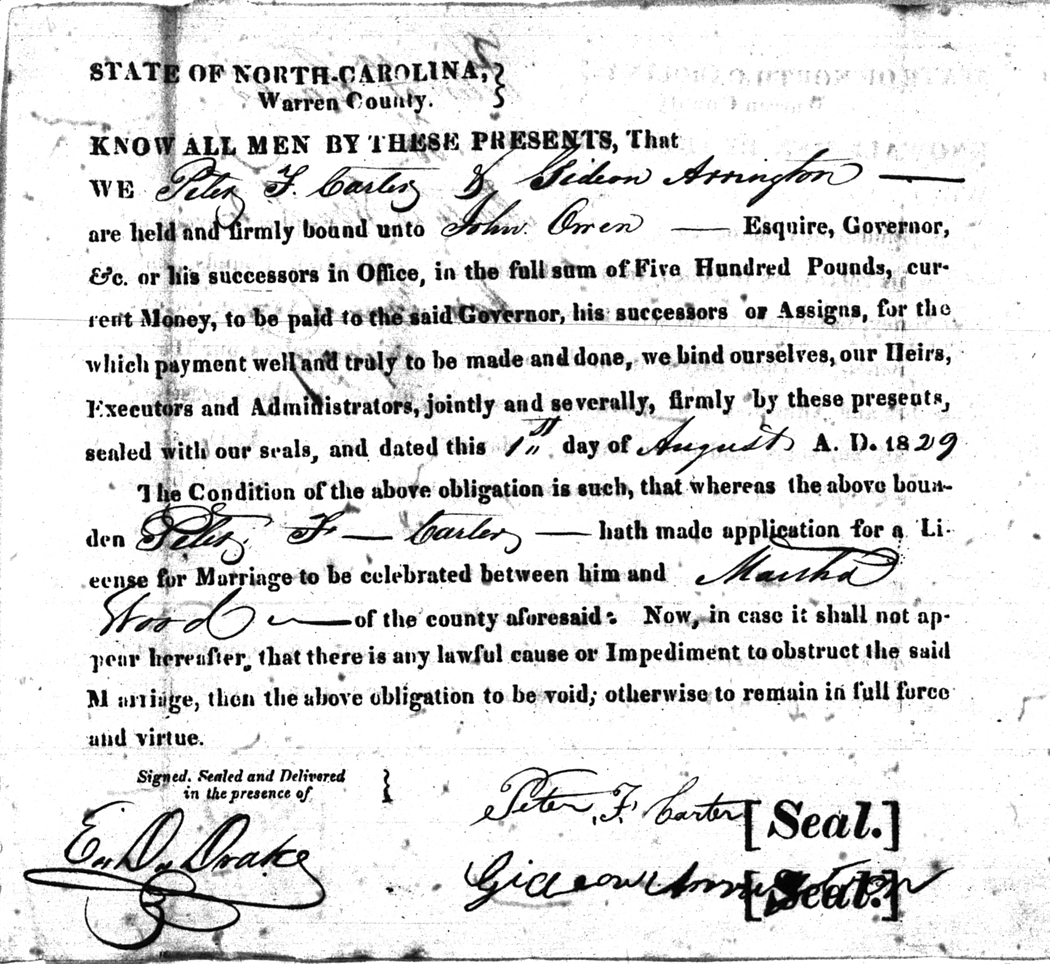 STATE OF NORTH-CAROLINA,
Warren County.
KNOW ALL MEN BY THESE PRESENTS, That
WE Peter F. Carter & Gideon Arrington
are held and firmly bound unto John Owen — Esquire, Governor,
&c. or his successors in Office, in the full sum of Five Hundred Pounds, cur-
rent Money, to be paid to the said Governor, his successors or Assigns, for the
which payment well and truly to be made and done, we bind ourselves, our Heirs,
Executors and Administrators, jointly and severally, firmly by these presents,
sealed with our seals, and dated this 1st day of August A. D. 1829
The Condition of the above obligation is such, that whereas the above boun-
den Peter F — Carter — hath made application for a Li-
cense for Marriage to be celebrated between him and Martha
Wood — of the county aforesaid: Now, in case it shall not ap-
pear hereafter, that there is any lawful cause or Impediment to obstruct the said
Marriage, then the above obligation to be void; otherwise to remain in full force
and virtue.
Signed, Sealed and Delivered
in the presence of
Peter F. Carter [Seal.]
E. D. Drake
Gideon Arrington [Seal.]